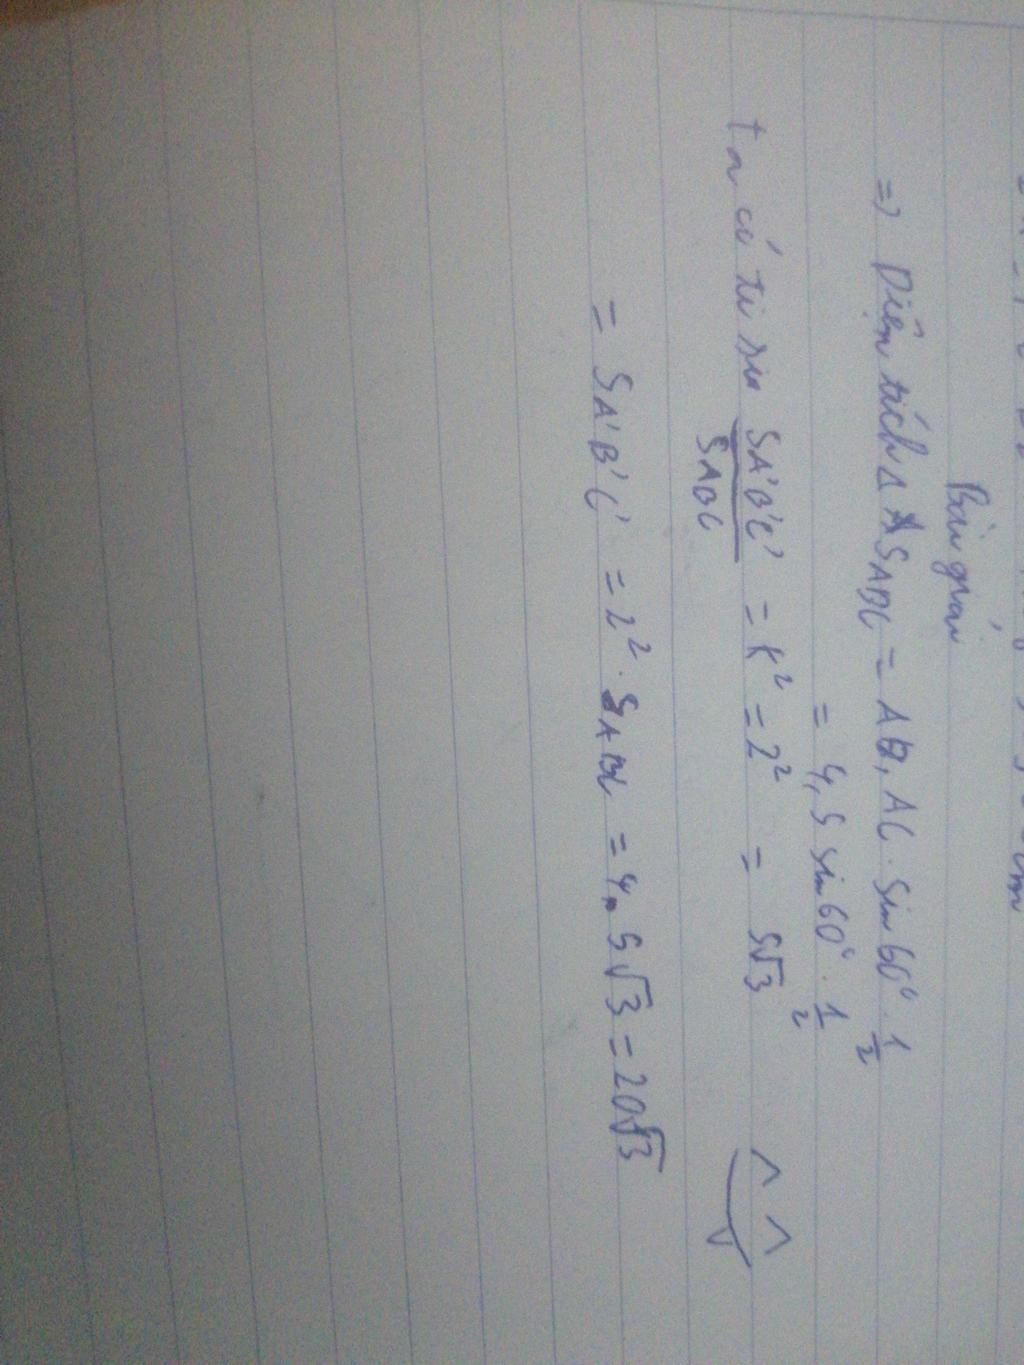 Bài giải
=> Diện tích Δ SABC = AB, AC . sin 60° . 1/2
= 4, 5 sin 60° . 1/2
ta có tỉ số SA'B'C'/SABC = k² = 2² = 5√3
= SA'B'C' = 2² . SABC = 4. 5√3 = 20√3